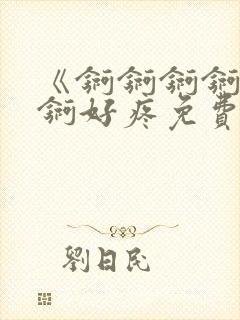 《锕锕锕锕
锕好疼免費
劉日民